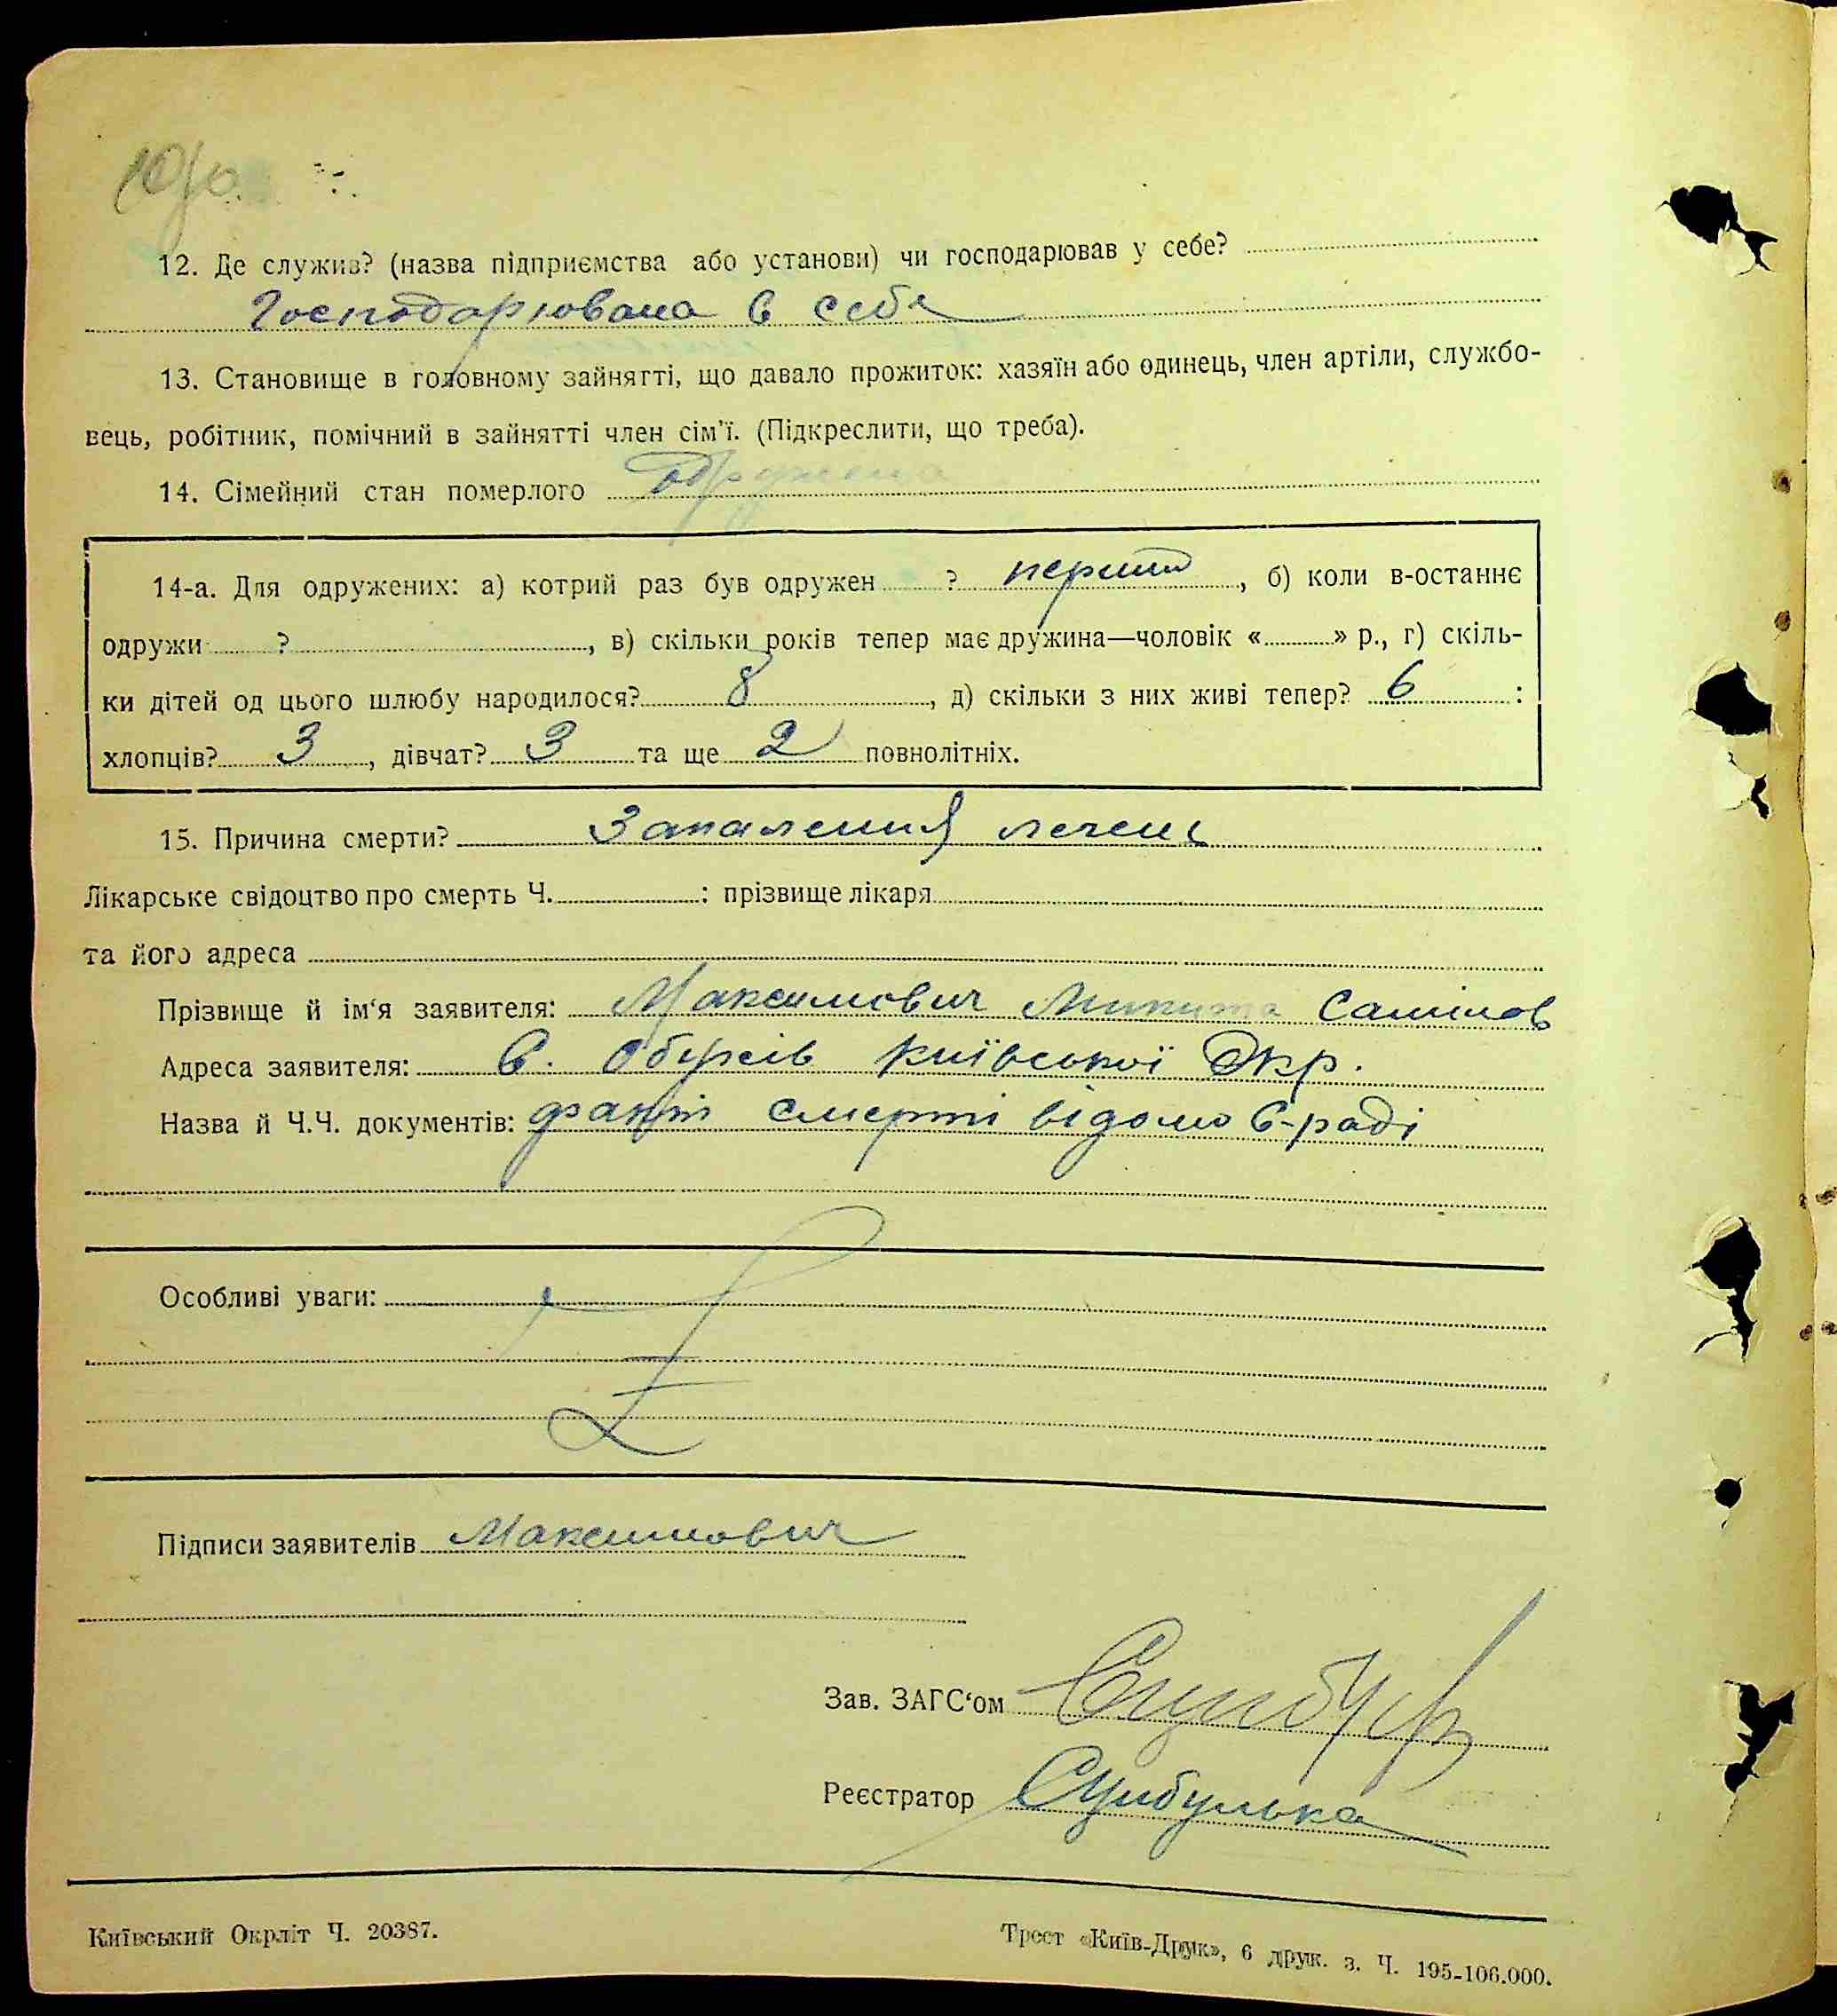 12. Де служив? (назва підприємства або установи) чи господарював у себе?
Господарювала в себе
13. Становище в головному зайнятті, що давало прожиток: хазяїн або одинець, член артіли, службо-
вець, робітник, помічний в зайнятті член сім'ї. (Підкреслити, що треба).
14. Сімейний стан померлого одружена
14-а. Для одружених: а) котрий раз був одружен ? перший, б) коли в-останнє
одружи ? , в) скільки років тепер має дружина—чоловік « » р., г) скіль-
ки дітей од цього шлюбу народилося? 8 , д) скільки з них живі тепер? 6 :
хлопців? 3 , дівчат? 3 та ще 2 повнолітніх.
15. Причина смерти? Запалення печени
Лікарське свідоцтво про смерть Ч. : прізвище лікаря
та його адреса
Прізвище й ім'я заявителя: Максимович Микита
Адреса заявителя: С. Обухів Київської Окр.
Назва й Ч.Ч. документів: факт смерті відомо С-раді
Особливі уваги:
Підписи заявителів Максимович
Зав. ЗАГС'ом
Реєстратор Сцибулька
Київський Окрліт Ч. 20387.
Трест «Київ-Друк», 6 друк. з. Ч. 195-106.000.